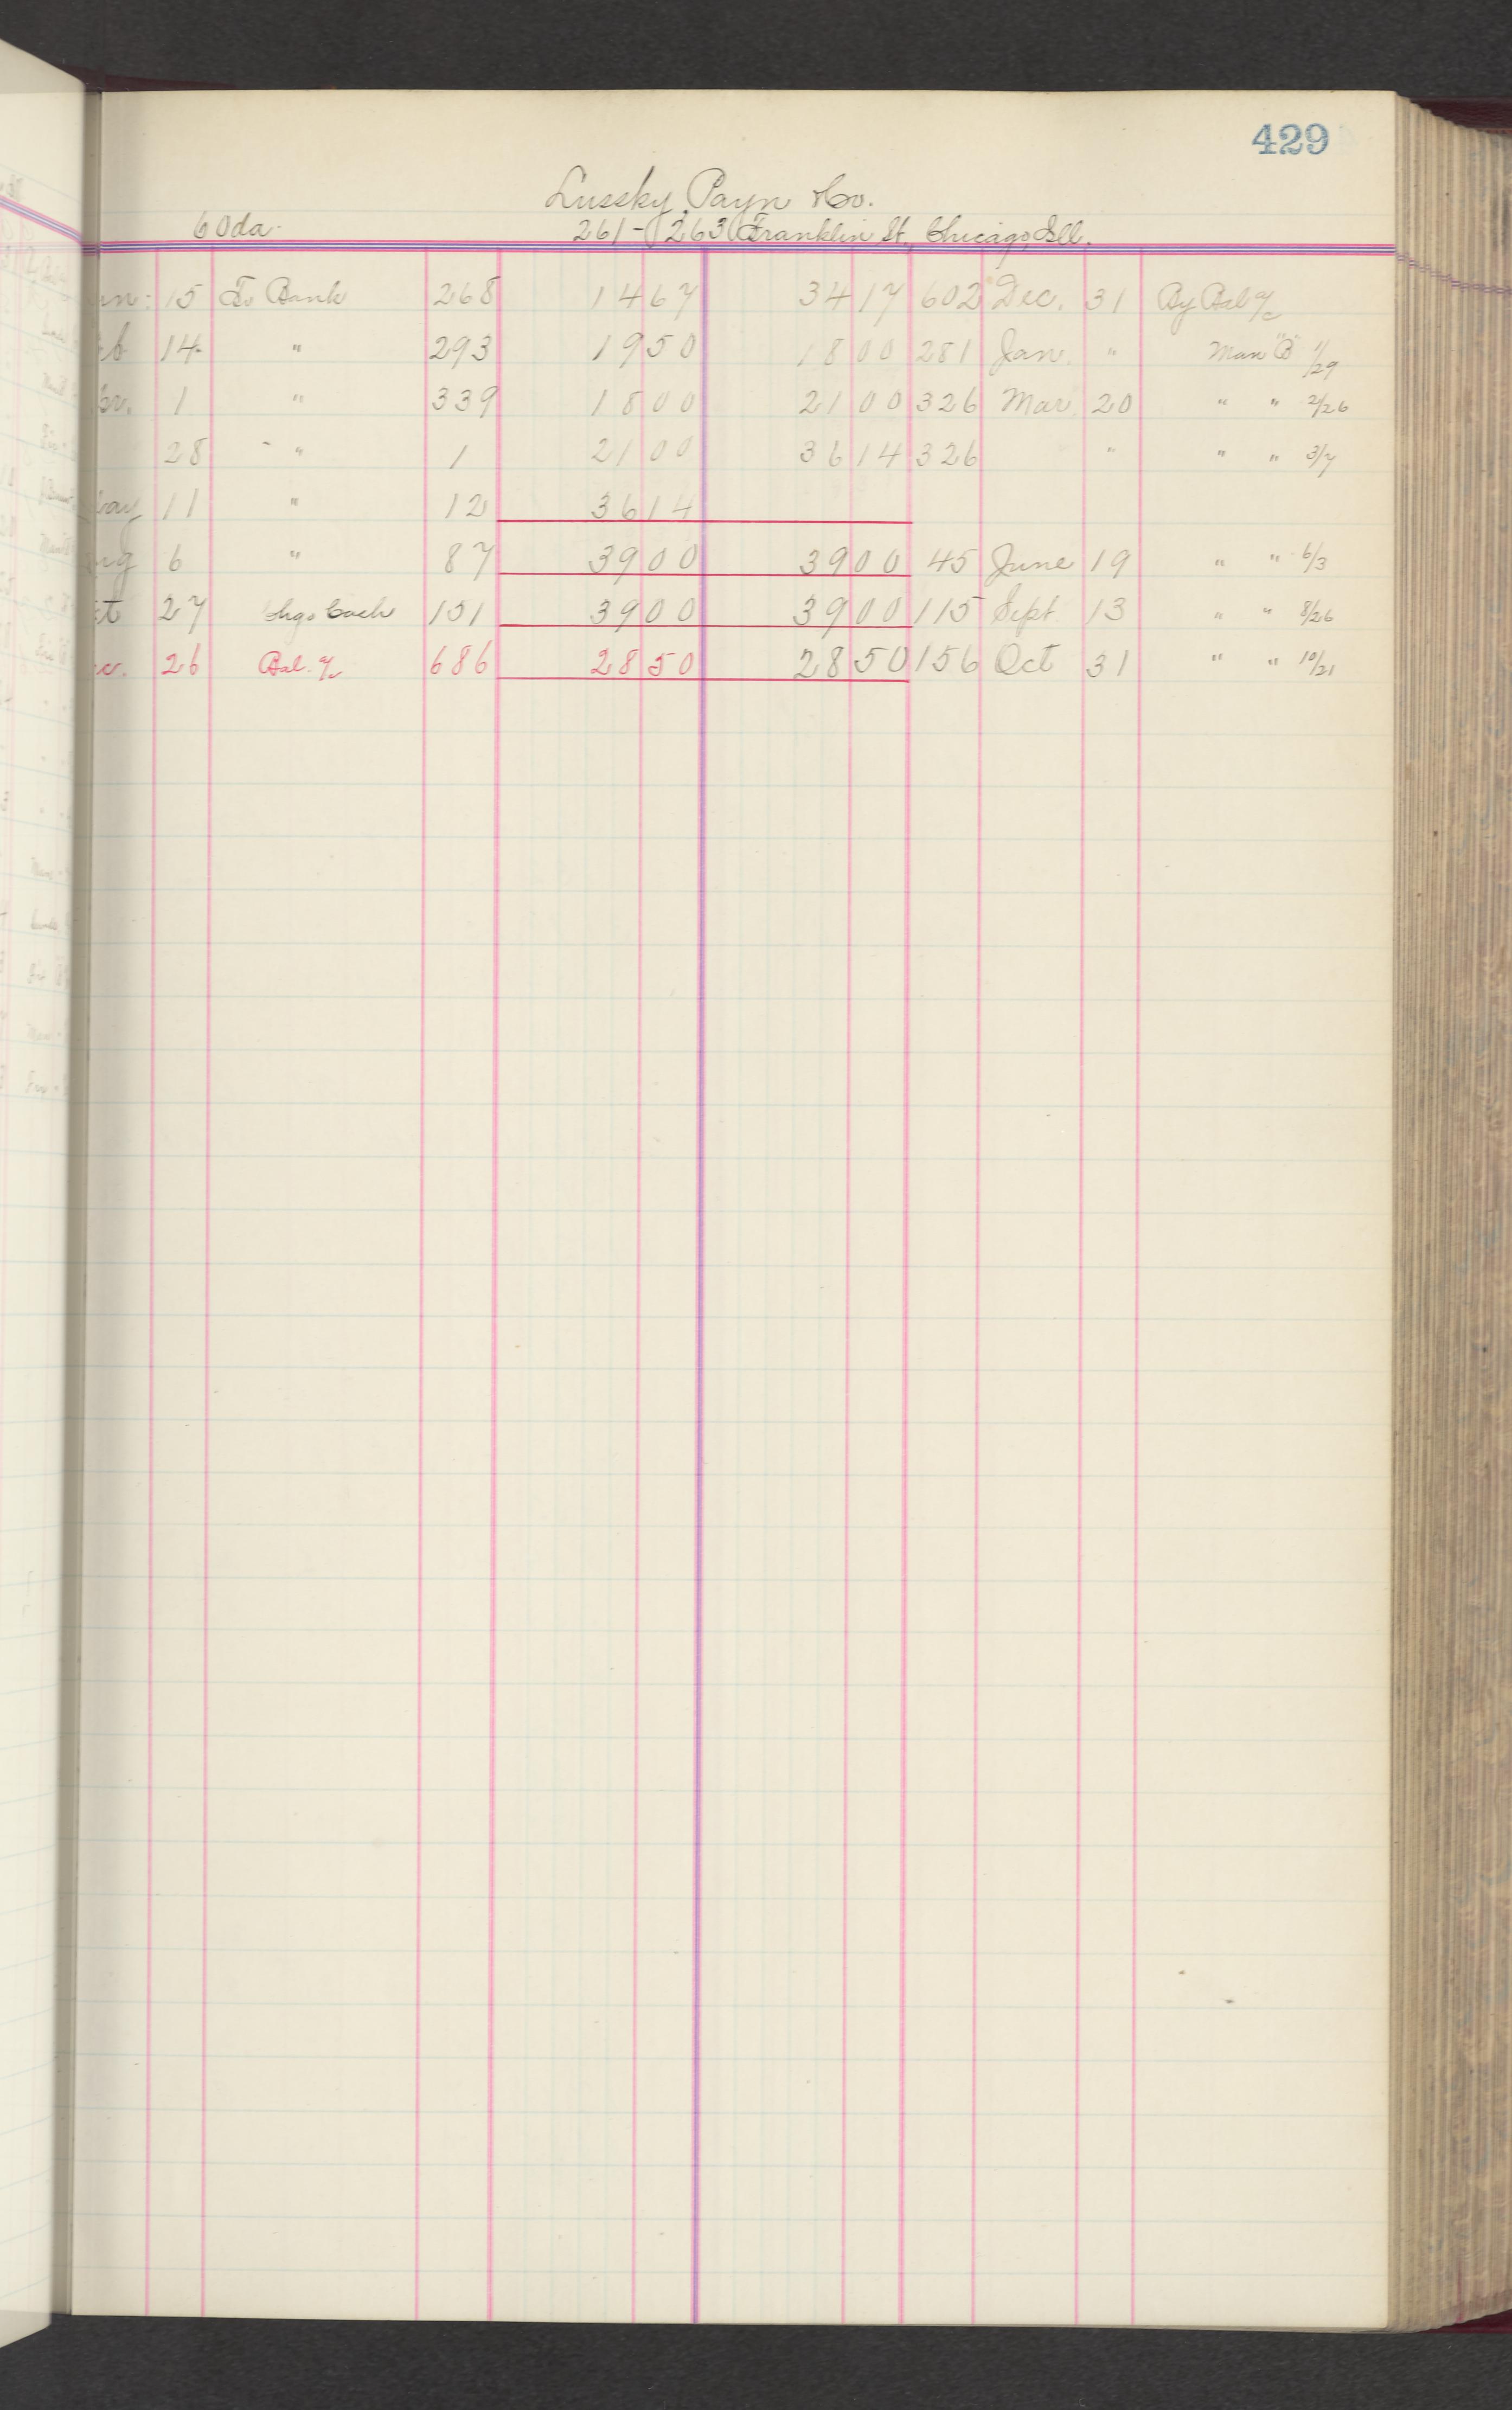 429
Lussky, Payn & Co.
60da. 261-263 Franklin St., Chicago Ill.
15 To Bank 268 1467 3417 602 Dec. 31 By Bal a/c
14 " 293 1950 1800 281 Jan. " Man "B" 1/29
1 " 339 1800 2100 326 Mar. 20 " " 2/26
28 " 1 2100 3614 326 " " " 3/7
11 " 12 3614
6 " 87 3900 3900 45 June 19 " " 6/3
27 Chgo Cash 151 3900 3900 115 Sept. 13 " " 8/26
26 Bal. a/c 686 2850 2850 156 Oct 31 " " 10/21